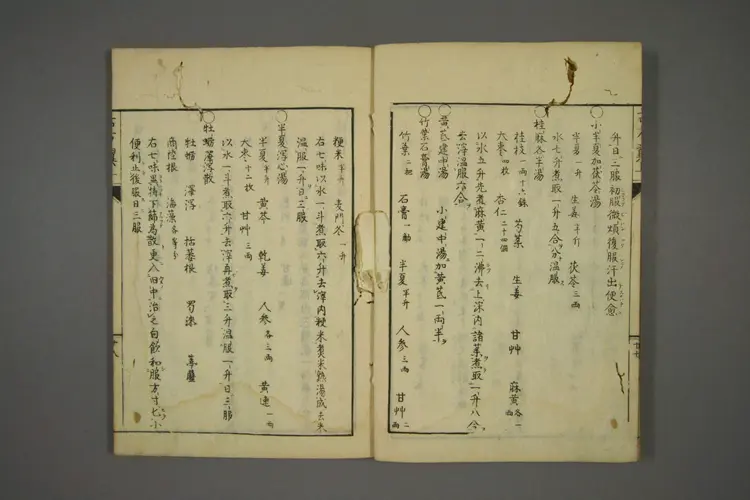 升日三服初服微煩復服汗出便愈
○小半夏加茯苓湯
半夏一升 生姜半斤 茯苓三両
水七升煮取一升五合分温服
○桂麻各半湯
桂枝一両十六銖 芍薬 生姜 甘艸 麻黄各一両
大枣四枚 杏仁二十四個
以水五升先煮麻黄一二沸去上沫内諸薬煮取一升八合
去滓温服六合
○黄芪建中湯 小建中湯加黄芪一両半
○竹葉石膏湯
竹葉二把 石膏一觔 半夏半升 人参三両 甘艸二両
粳米半升 麦門冬一升
右七味以水一斗煮取六升去滓内粳米煮米熟湯成去米
温服一升日三服
○半夏瀉心湯
半夏半升 黄芩 乾姜 人参各三両 黄連一両
大枣十二枚 甘艸三両
以水一斗煮取六升去滓再煮取三升温服一升日三服
○牡蠣澤瀉散
牡蠣 澤瀉 括蔞根 蜀漆 葶藶
商陸根 海藻各等分
右七味異搗下篩為散更入臼中治之白飲和服方寸匕小
便利止後服日三服